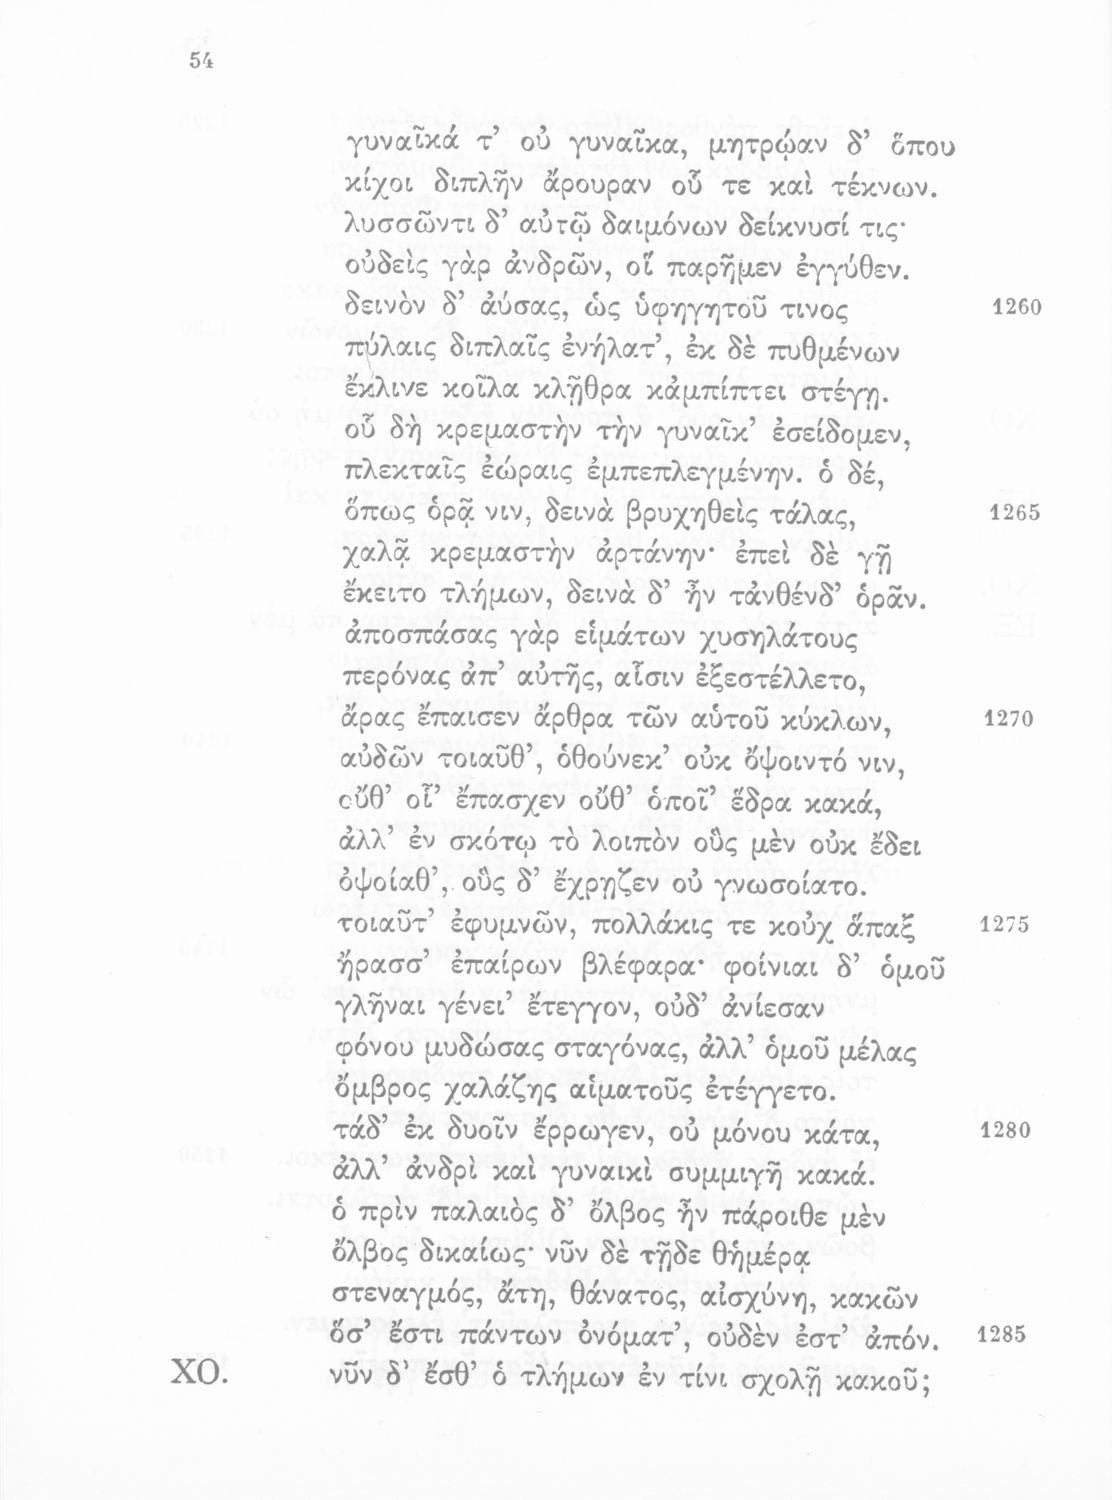 54
γυναῖκά τ’ οὐ γυναῖκα, μητρῴαν δ’ ὅπου
κίχοι διπλῆν ἄρουραν οὗ τε καὶ τέκνων.
λυσσῶντι δ’ αὐτῷ δαιμόνων δείκνυσί τις·
οὐδεὶς γὰρ ἀνδρῶν, οἳ παρῆμεν ἐγγύθεν.
δεινὸν δ’ ἀύσας, ὡς ὑφηγητοῦ τινος 1260
πύλαις διπλαῖς ἐνήλατ’, ἐκ δὲ πυθμένων
ἔκλινε κοῖλα κλῇθρα κἀμπίπτει στέγῃ.
οὗ δὴ κρεμαστὴν τὴν γυναῖκ’ ἐσείδομεν,
πλεκταῖς ἐώραις ἐμπεπλεγμένην. ὁ δέ,
ὅπως ὁρᾷ νιν, δεινὰ βρυχηθεὶς τάλας, 1265
χαλᾷ κρεμαστὴν ἀρτάνην· ἐπεὶ δὲ γῇ
ἔκειτο τλήμων, δεινὰ δ’ ἦν τἀνθένδ’ ὁρᾶν.
ἀποσπάσας γὰρ εἱμάτων χυσηλάτους
περόνας ἀπ’ αὐτῆς, αἷσιν ἐξεστέλλετο,
ἄρας ἔπαισεν ἄρθρα τῶν αὑτοῦ κύκλων, 1270
αὐδῶν τοιαῦθ’, ὁθούνεκ’ οὐκ ὄψοιντό νιν,
οὔθ’ οἷ’ ἔπασχεν οὔθ’ ὁποῖ’ ἔδρα κακά,
ἀλλ’ ἐν σκότῳ τὸ λοιπὸν οὓς μὲν οὐκ ἔδει
ὀψοίαθ’, οὓς δ’ ἔχρῃζεν οὐ γνωσοίατο.
τοιαῦτ’ ἐφυμνῶν, πολλάκις τε κοὐχ ἅπαξ 1275
ἤρασσ’ ἐπαίρων βλέφαρα· φοίνιαι δ’ ὁμοῦ
γλῆναι γένει’ ἔτεγγον, οὐδ’ ἀνίεσαν
φόνου μυδώσας σταγόνας, ἀλλ’ ὁμοῦ μέλας
ὄμβρος χαλάζης αἱματοῦς ἐτέγγετο.
τάδ’ ἐκ δυοῖν ἔρρωγεν, οὐ μόνου κάτα, 1280
ἀλλ’ ἀνδρὶ καὶ γυναικὶ συμμιγῆ κακά.
ὁ πρὶν παλαιὸς δ’ ὄλβος ἦν πάροιθε μὲν
ὄλβος δικαίως· νῦν δὲ τῇδε θἠμέρᾳ
στεναγμός, ἄτη, θάνατος, αἰσχύνη, κακῶν
ὅσ’ ἔστι πάντων ὀνόματ’, οὐδὲν ἐστ’ ἀπόν. 1285
ΧΟ. νῦν δ’ ἔσθ’ ὁ τλήμων ἐν τίνι σχολῇ κακοῦ;